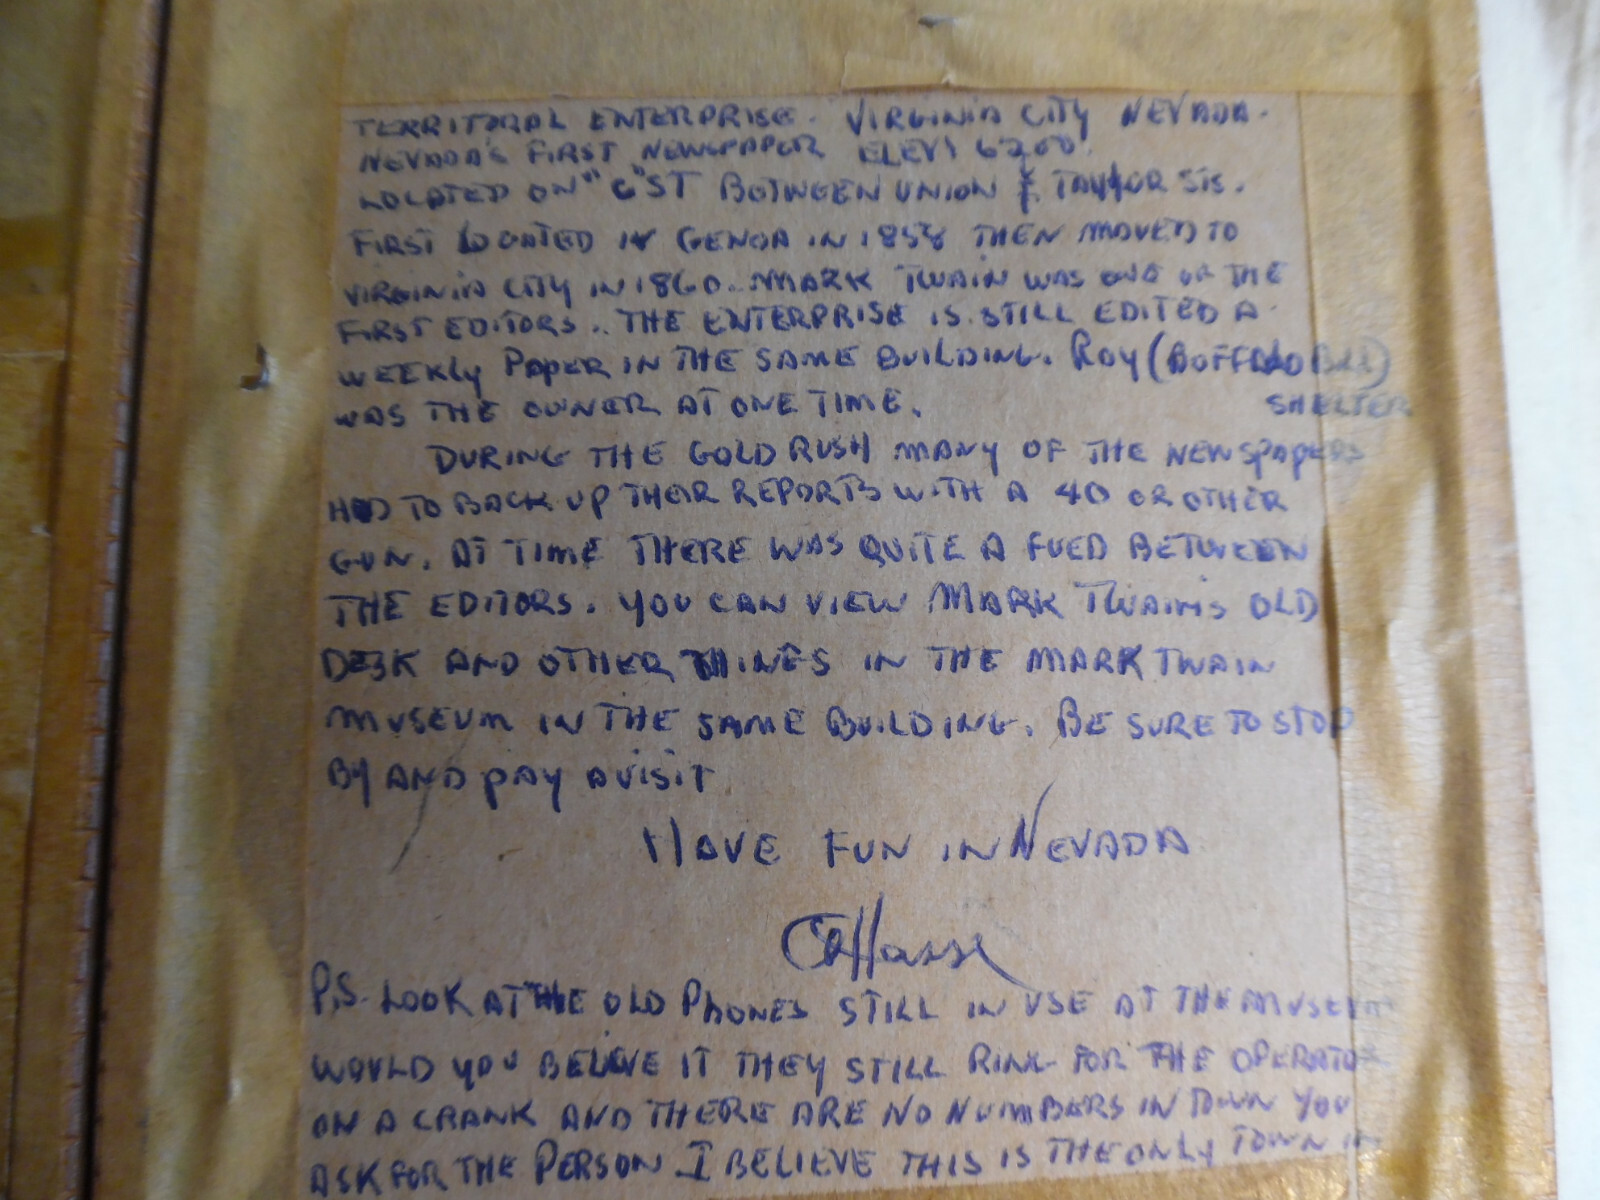 TERRITORAL ENTERPRISE. VIRGINIA CITY NEVADA.
NEVADA'S FIRST NEWSPAPER ELEV. 6200.
LOCATED ON "C" ST BETWEEN UNION & TAYLOR STS.
FIRST LOCATED IN GENOA IN 1858 THEN MOVED TO
VIRGINIA CITY IN 1860.. MARK TWAIN WAS ONE OF THE
FIRST EDITORS.. THE ENTERPRISE IS STILL EDITED A
WEEKLY PAPER IN THE SAME BUILDING. ROY (BUFFALO BILL)
WAS THE OWNER AT ONE TIME. SHELTER
DURING THE GOLD RUSH MANY OF THE NEWSPAPERS
HAD TO BACK UP THEIR REPORTS WITH A 40 OR OTHER
GUN. AT TIME THERE WAS QUITE A FUED BETWEEN
THE EDITORS. YOU CAN VIEW MARK TWAIN'S OLD
DESK AND OTHER THINGS IN THE MARK TWAIN
MUSEUM IN THE SAME BUILDING. BE SURE TO STOP
BY AND PAY A VISIT
HAVE FUN IN NEVADA
P.S. LOOK AT THE OLD PHONES STILL IN USE AT THE MUSEUM
WOULD YOU BELIEVE IT THEY STILL RING FOR THE OPERATOR
ON A CRANK AND THERE ARE NO NUMBERS IN TOWN YOU
ASK FOR THE PERSON I BELIEVE THIS IS THE ONLY TOWN IN